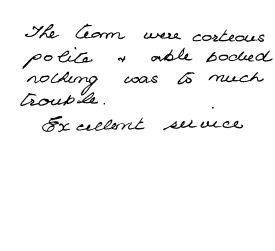 The team were corteous
polite & able bodied
nothing was to much
trouble.
Excellent service